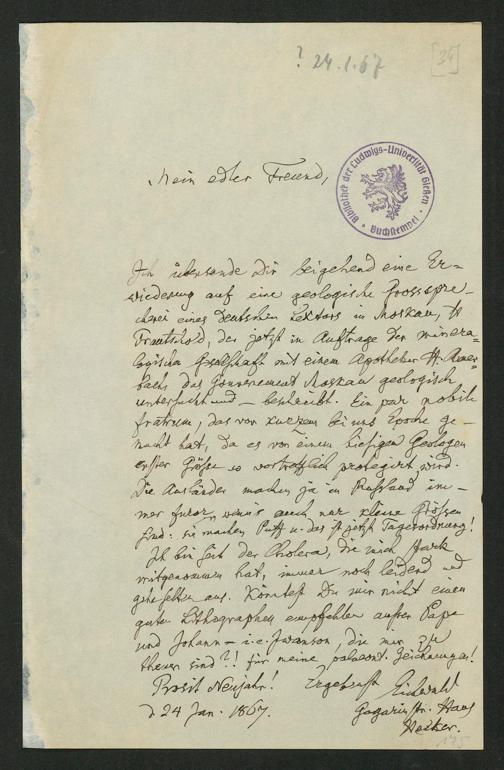 ? 24.1.67
[34]
Mein edler Freund,
Bibliothek der Ludwigs-Universität Gießen · Buchstempel ·
Ich übersende Dir beigehend eine Er-
wiederung auf eine geologische Grosspre-
cherei eines deutschen Lektors in Moskau, H.
Trautschold, der jetzt im Auftrage der minera-
logischen Gesellschaft mit einem Apotheker H. Auer-
bach das Gouvernement Moskau geologisch
untersucht und – beschreibt. Ein par nobile
fratrum, das vor kurzem bei uns Epoche ge-
macht hat, da es von einem hiesigen Geologen
erster Größe so vortrefflich protegirt wird.
Die Ausländer machen ja in Russland im-
mer furor, wenn's auch nur kleine Größen
sind: sie machen Puff u. das ist jetzt Tagesordnung!
Ich bin seit der Cholera, die mich stark
mitgenommen hat, immer noch leidend und
gehe selten aus. Könntest Du mir nicht einen
guten Lithographen empfehlen ausser Pape
und Johann – i.e. Iwanson, die mir zu
theuer sind?! für meine palaeont. Zeichnungen!
Prosit Neujahr! Ergebenst Eichwald
d 24 Jan. 1867.
Gagarinstr. Haus
175